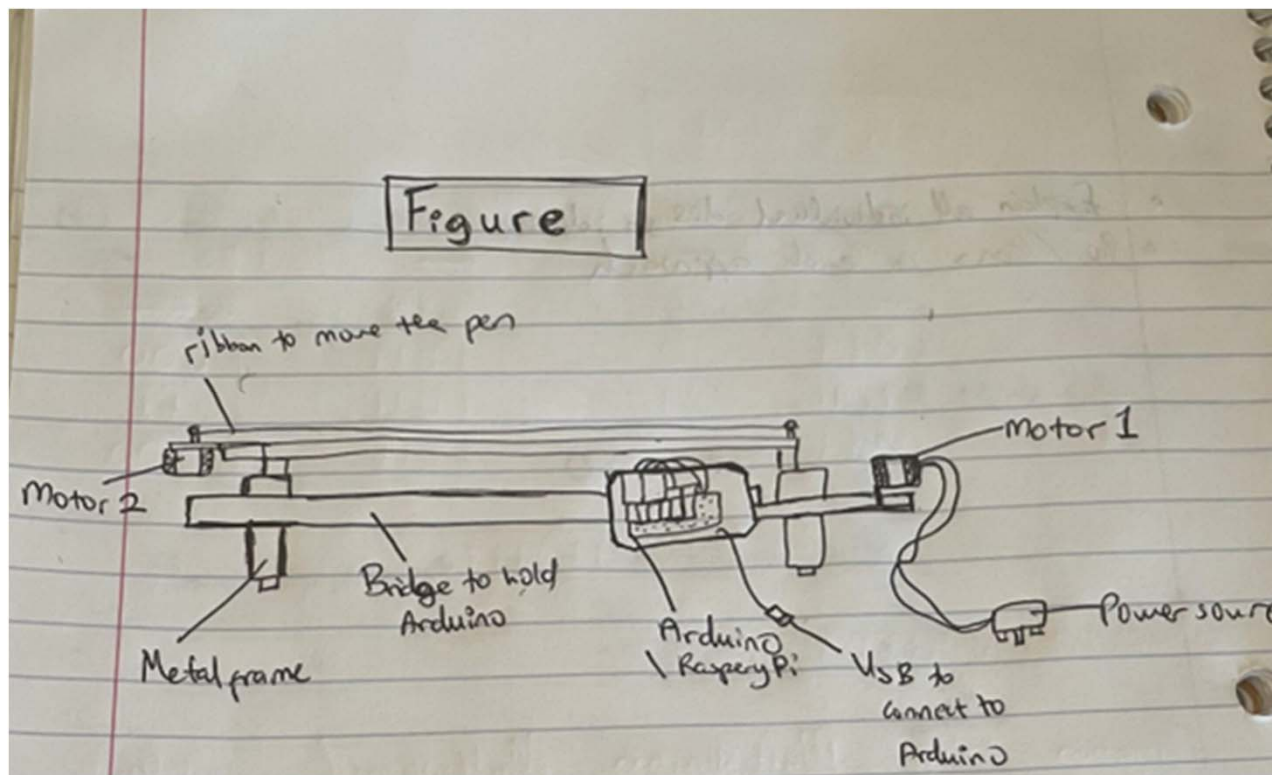 Figure
ribbon to move the pen
Motor 1
Motor 2
Bridge to hold
Arduino
Metal frame
Arduino
\ Raspery Pi
USB to
connect to
Arduino
Power sourc